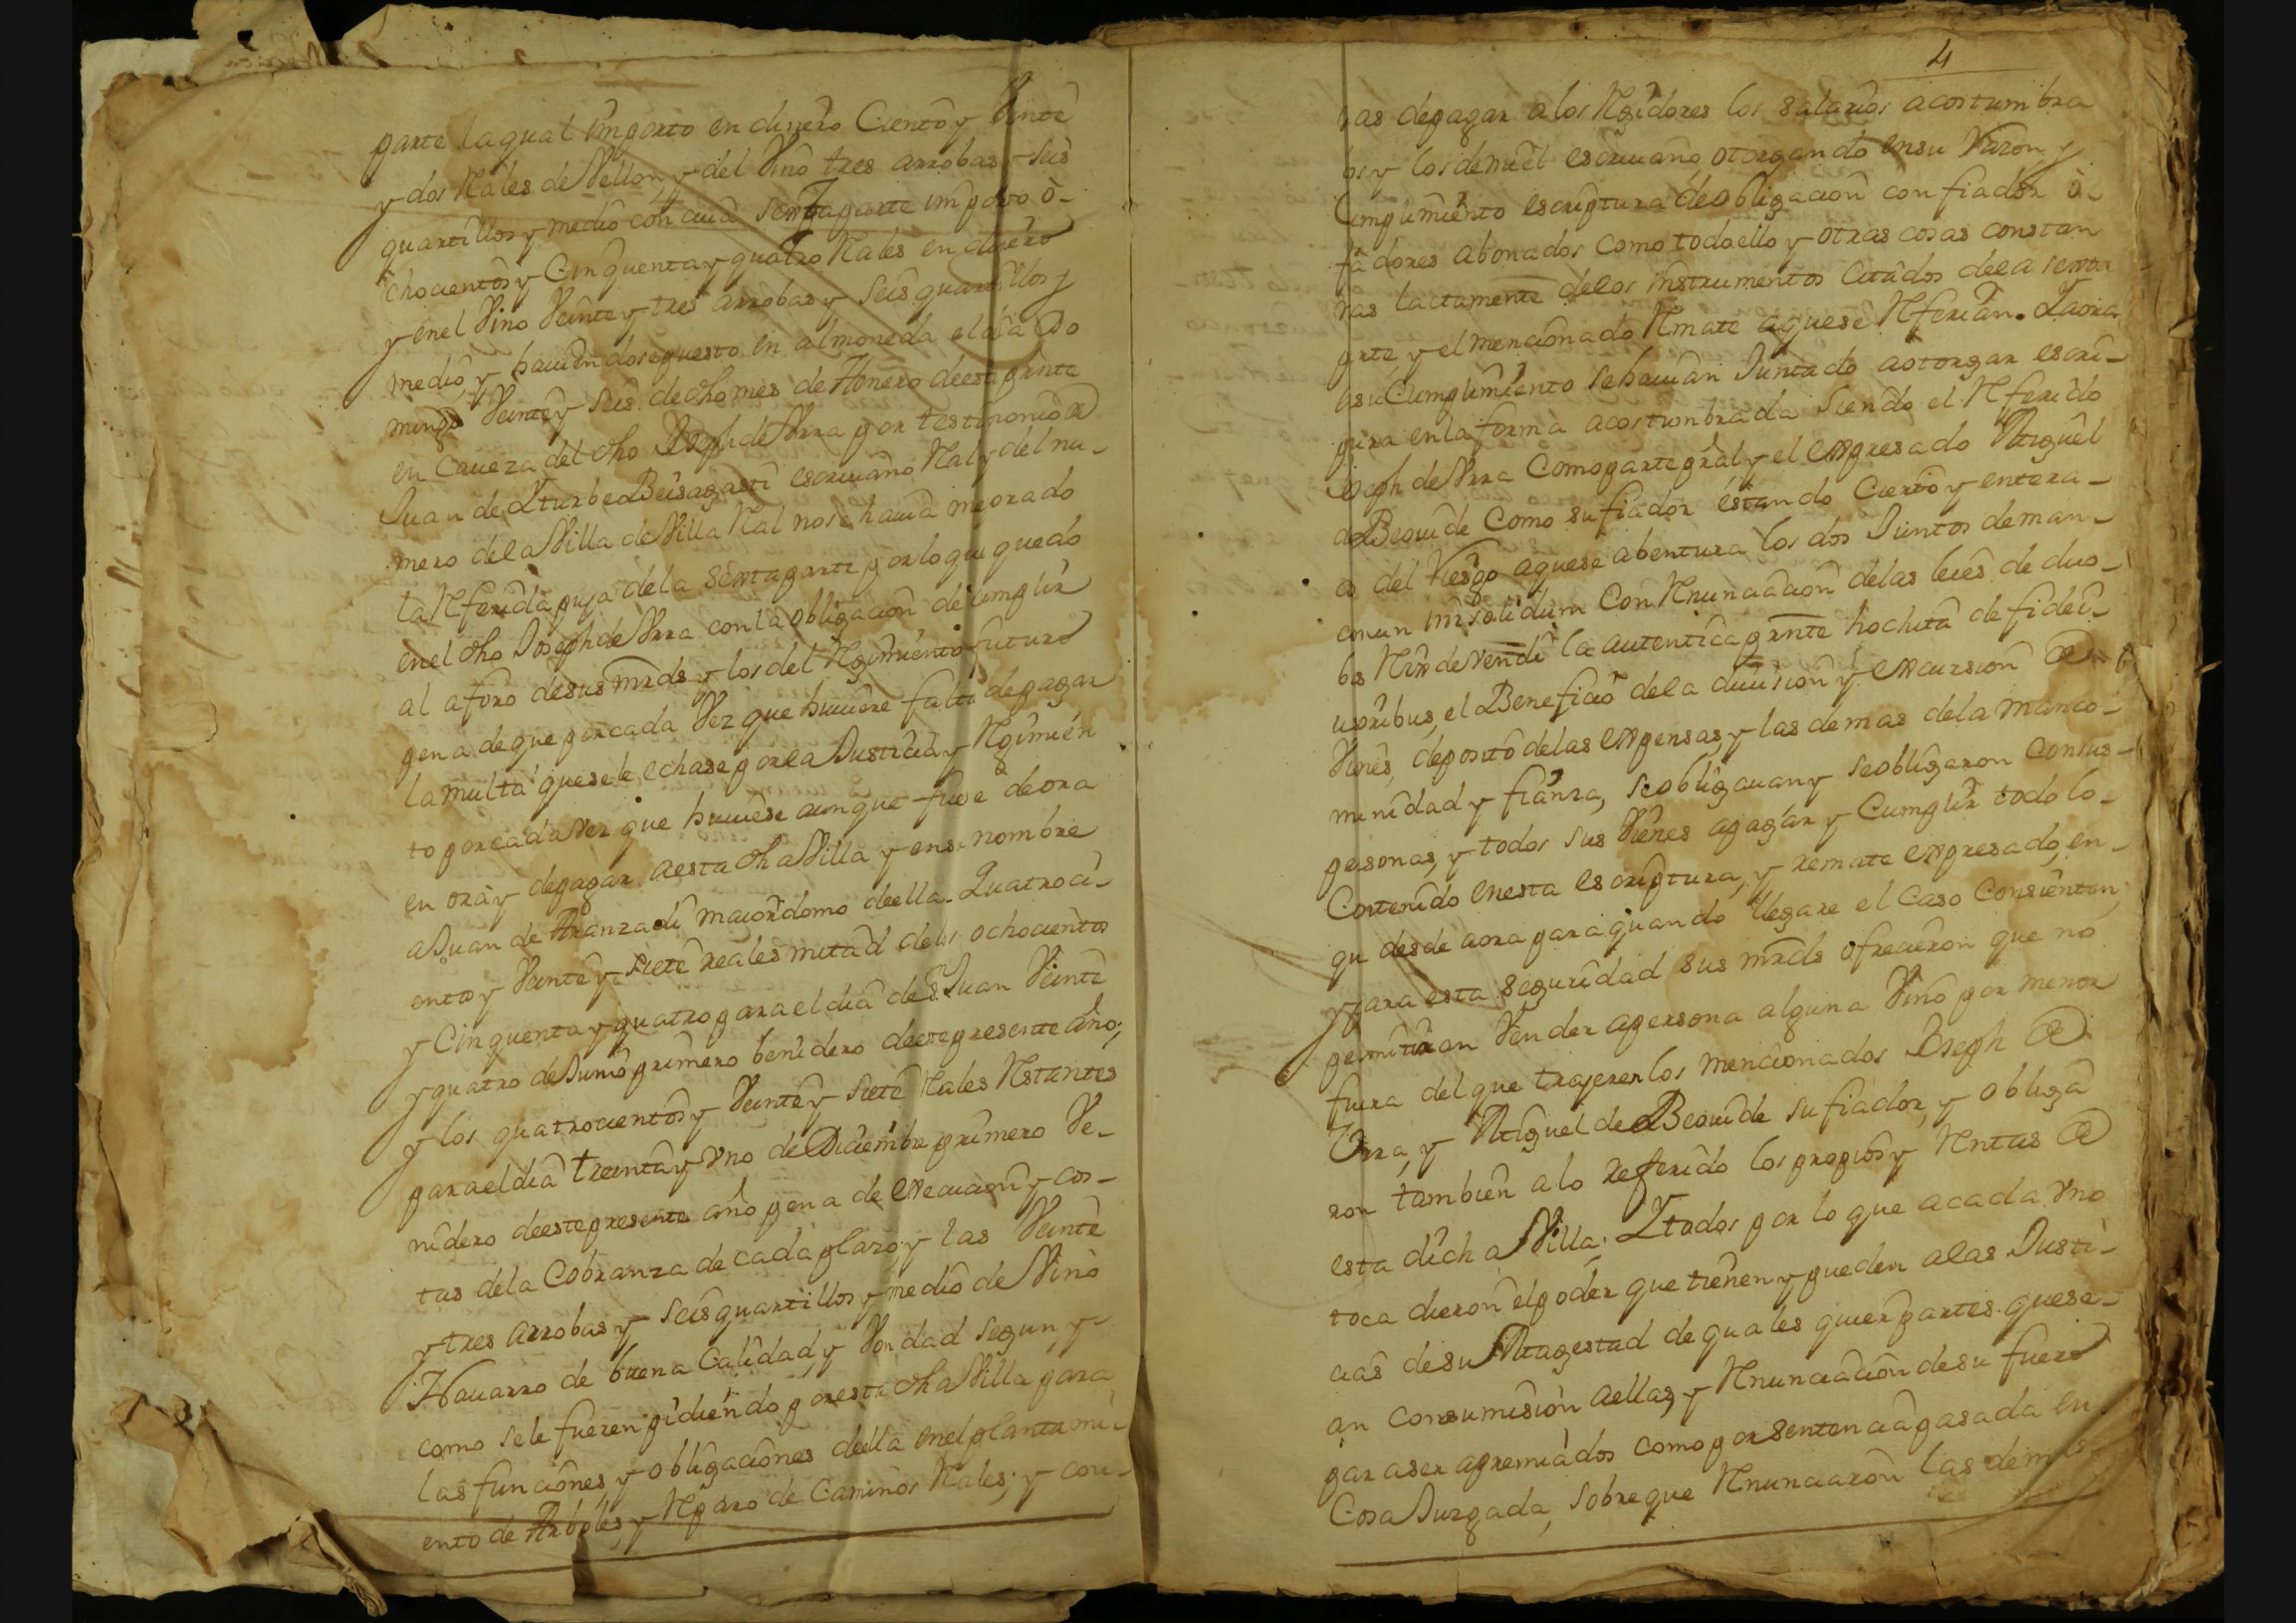 parte la qual importo en dinero Ciento y Veinte
y dos Rales de Vellon, y del Vino tres arrobas y seis
quartillos y medio con cuia sexta parte importo o-
chocientos y Cinquenta y quatro Rales en dinero
y en el Vino Veinte y tres arrobas y seis quartillos y
medio, y haviendose puesto en almoneda el dia Do
mingo Veinte y seis de dho mes de Henero de este pnte
en caveza del dho Joseph de Urra por testimonio de
Juan de Yturbe Beisagasti escrivano Ral y del nu-
mero de la Villa de Villa Ral no se havia mejorado
la Referida puja de la sexta parte por lo que quedo
en el dho Joseph de Urra con la obligacion de cumplir
al aforo de sus mrds y los del Regimiento futuro
pena de que por cada Vez que huviere falta de pagar
la multa que se le echase por la Justicia y Regimien
to por cada vez que huviese aunque fuese de ora
en ora y de pagar a esta dha Villa y en su nombre
a Juan de Aranzadi maiordomo de ella. Quatroci-
entos y Veinte y siete reales mitad de los ochocientos
y Cinquenta y quatro para el dia de Sn Juan Veinte
y quatro de Junio primero benidero de este presente año;
y los quatrocientos y Veinte y siete Rales Restantes
para el dia treinta y uno de Diciembre primero Ve-
nidero de este presente año pena de execucion y cos-
tas de la Cobranza de cada plazo; y las Veinte
y tres arrobas y seis quartillos y medio de Vino
Navarro de buena Calidad y Vondad segun y
como se le fueren pidiendo por esta dha Villa para
las funciones y obligaciones de ella en el plantami-
ento de Arboles, y Reparo de Caminos Rales; y con-
4
das de pagar a los Regidores los salarios acostumbra
dos y los de mi el escrivano, otorgando en su Razon y
Cumplimiento escriptura de obligacion con fiador o
fiadores abonados como todo ello y otras cosas constan
mas lactamente de los instrumentos Citados de la sexta
parte, y el mencionado Remate a que se Referian. Y aora
a su Cumplimiento se havian Juntado a otorgar escri-
ptura en la forma acostumbrada siendo el Referido
Joseph de Urra Como parte pral y el expresado Miguel
de Beovide Como su fiador estando Cierto y entera-
do del riesgo a que se abentura los dos Juntos de man-
comun insolidum Con Renunciacion de las leies de duo-
bus Rex devendi la autentica presente hochita de fidei-
usoribus, el Beneficio de la division y excursion de
Vienes, deposito de las expensas, y las demas de la manco-
munidad y fianza, se obligavan y se obligaron Con sus
personas, y todos sus Vienes a pagar y Cumplir todo lo
Contenido en esta escriptura, y remate expresado, en
qu desde aora para quando llegare el Caso Consienten;
y para esta seguridad sus mrds ofrecieron que no
permitiran Vender a persona alguna Vino por menor
fuera del que trajeren los mencionados Joseph de
Urra, y Miguel de Beovide su fiador, y obliga
ron tambien a lo Referido los propios y Rentas de
esta dicha Villa; Y todos por lo que a cada uno
toca dieron el poder que tienen y pueden a las Justi-
cias de su Magestad de quales quier partes que se-
an con sumision a ellas, y Renunciacion de su fuero
para ser apremiados como por sentencia pasada en
Cosa Juzgada, sobre que Renunciaron las demas